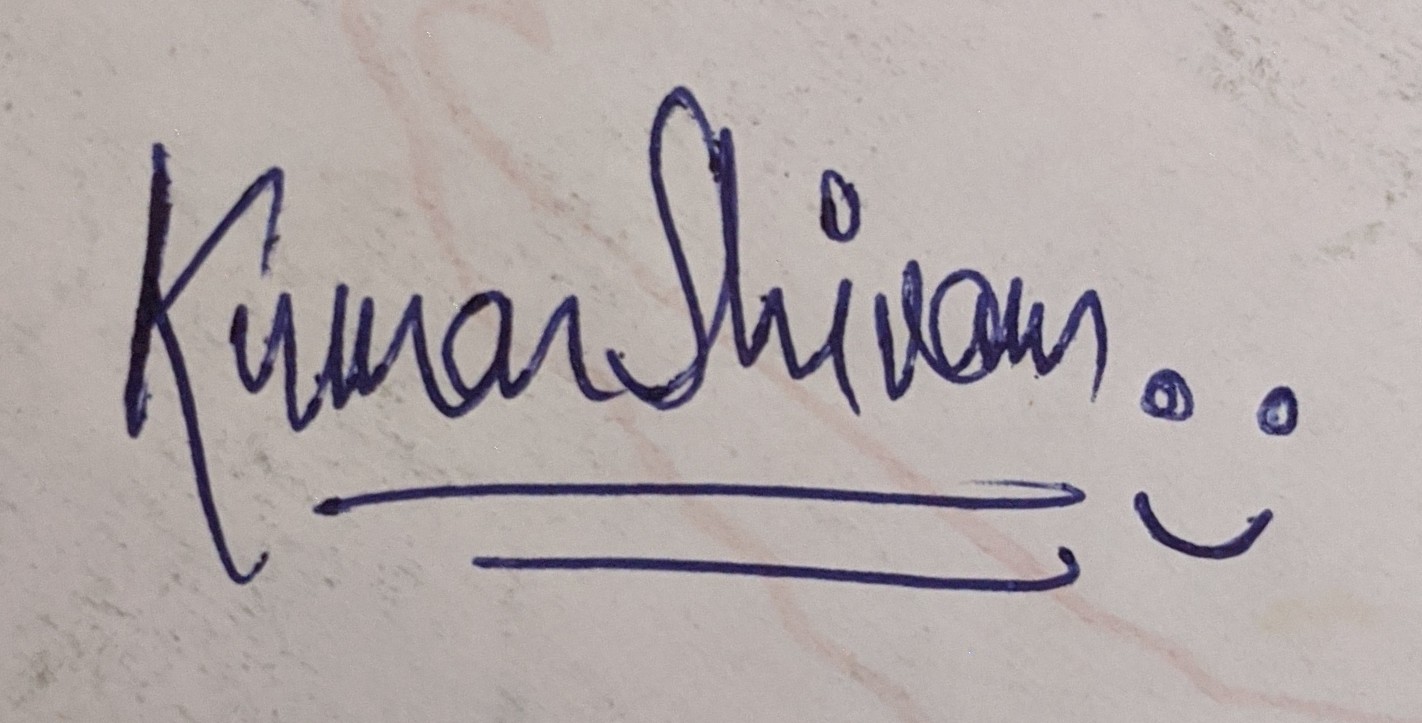 Kumar Shivam